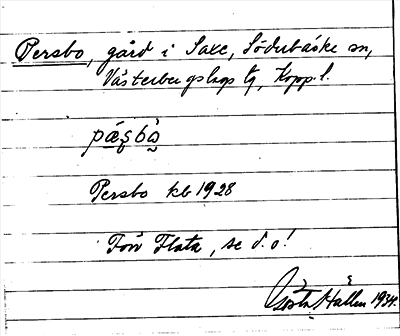 Persbo, gård i Saxe, Söderbärke sn,
Västerbergslags tg, Kopp. l.
pæ̣ʂbò̬
Persbo kb 1928
Förr Flata, se d.o!
Gösta Hallén 1934.